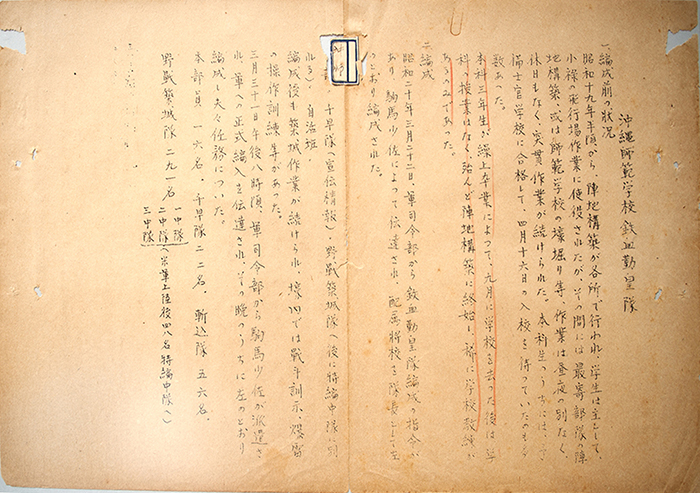 沖縄師範学校鉄血勤皇隊
一、編成前の状況
昭和十九年半頃から、陣地構築が各所で行われ、学生は主として、
小禄の飛行場作業に使役されたが、その間には最寄部隊の陣
地構築、或は師範学校の壕掘り等、作業は昼夜の別なく、
休日もなく、突貫作業が続けられた。本科生のうちには、
備士官学校に合格して、四月十六日の入校を待っていたのも
数あった。
本科三年生が繰上卒業によって、九月に学校を去った後は学
科の授業はなく、殆んど陣地構築に終始し、稀に学校教練が
あるのみであった。
二、編成
昭和二十年三月二十二日、軍司令部から鉄血勤皇隊編成の指令が
あり、駒馬少佐によって伝達され、配属将校を隊長として左
のとおり編成された。
千早隊（宣伝情報）野戦築城隊（後に特編中隊に別
れる）自治班、
編成後も築城作業が続けられ、壕内では戦斗訓示、爆雷
の操作訓練等があった。
三月三十一日午後八時頃、軍司令部から駒馬少佐が派遣さ
れ、軍への正式編入を伝達され、その晩のうちに左のとおり
編成し夫々任務についた。
本部員一六名、千早隊二二名、斬込隊五六名、
野戦築城隊二九一名
一中隊
二中隊（米軍上陸後四八名特編中隊へ）
三中隊